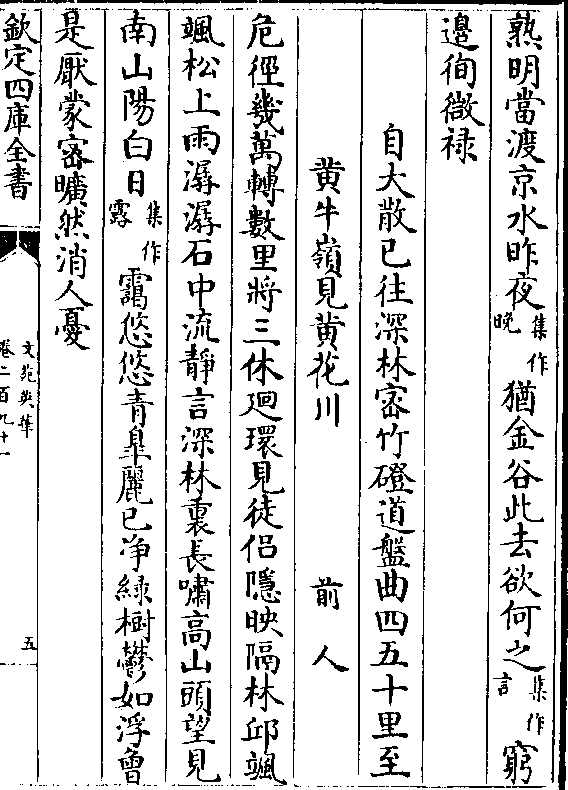 熟明當渡京水昨夜集作晚猶金谷此去欲何之集作言窮
邉徇微禄
自大散已往深林宻竹磴道盤曲四五十里至
黄牛嶺見黄花川 前人
危徑幾萬轉數里將三休廻環見徒侣隱映隔林邱颯
颯松上雨潺潺石中流靜言深林裏長嘯高山頭望見
南山陽白日集作露靄悠悠青臯麗已净緑樹鬱如浮曾
是厭蒙宻曠然消人憂
欽定四庫全書
文苑英華
卷二百九十一
五